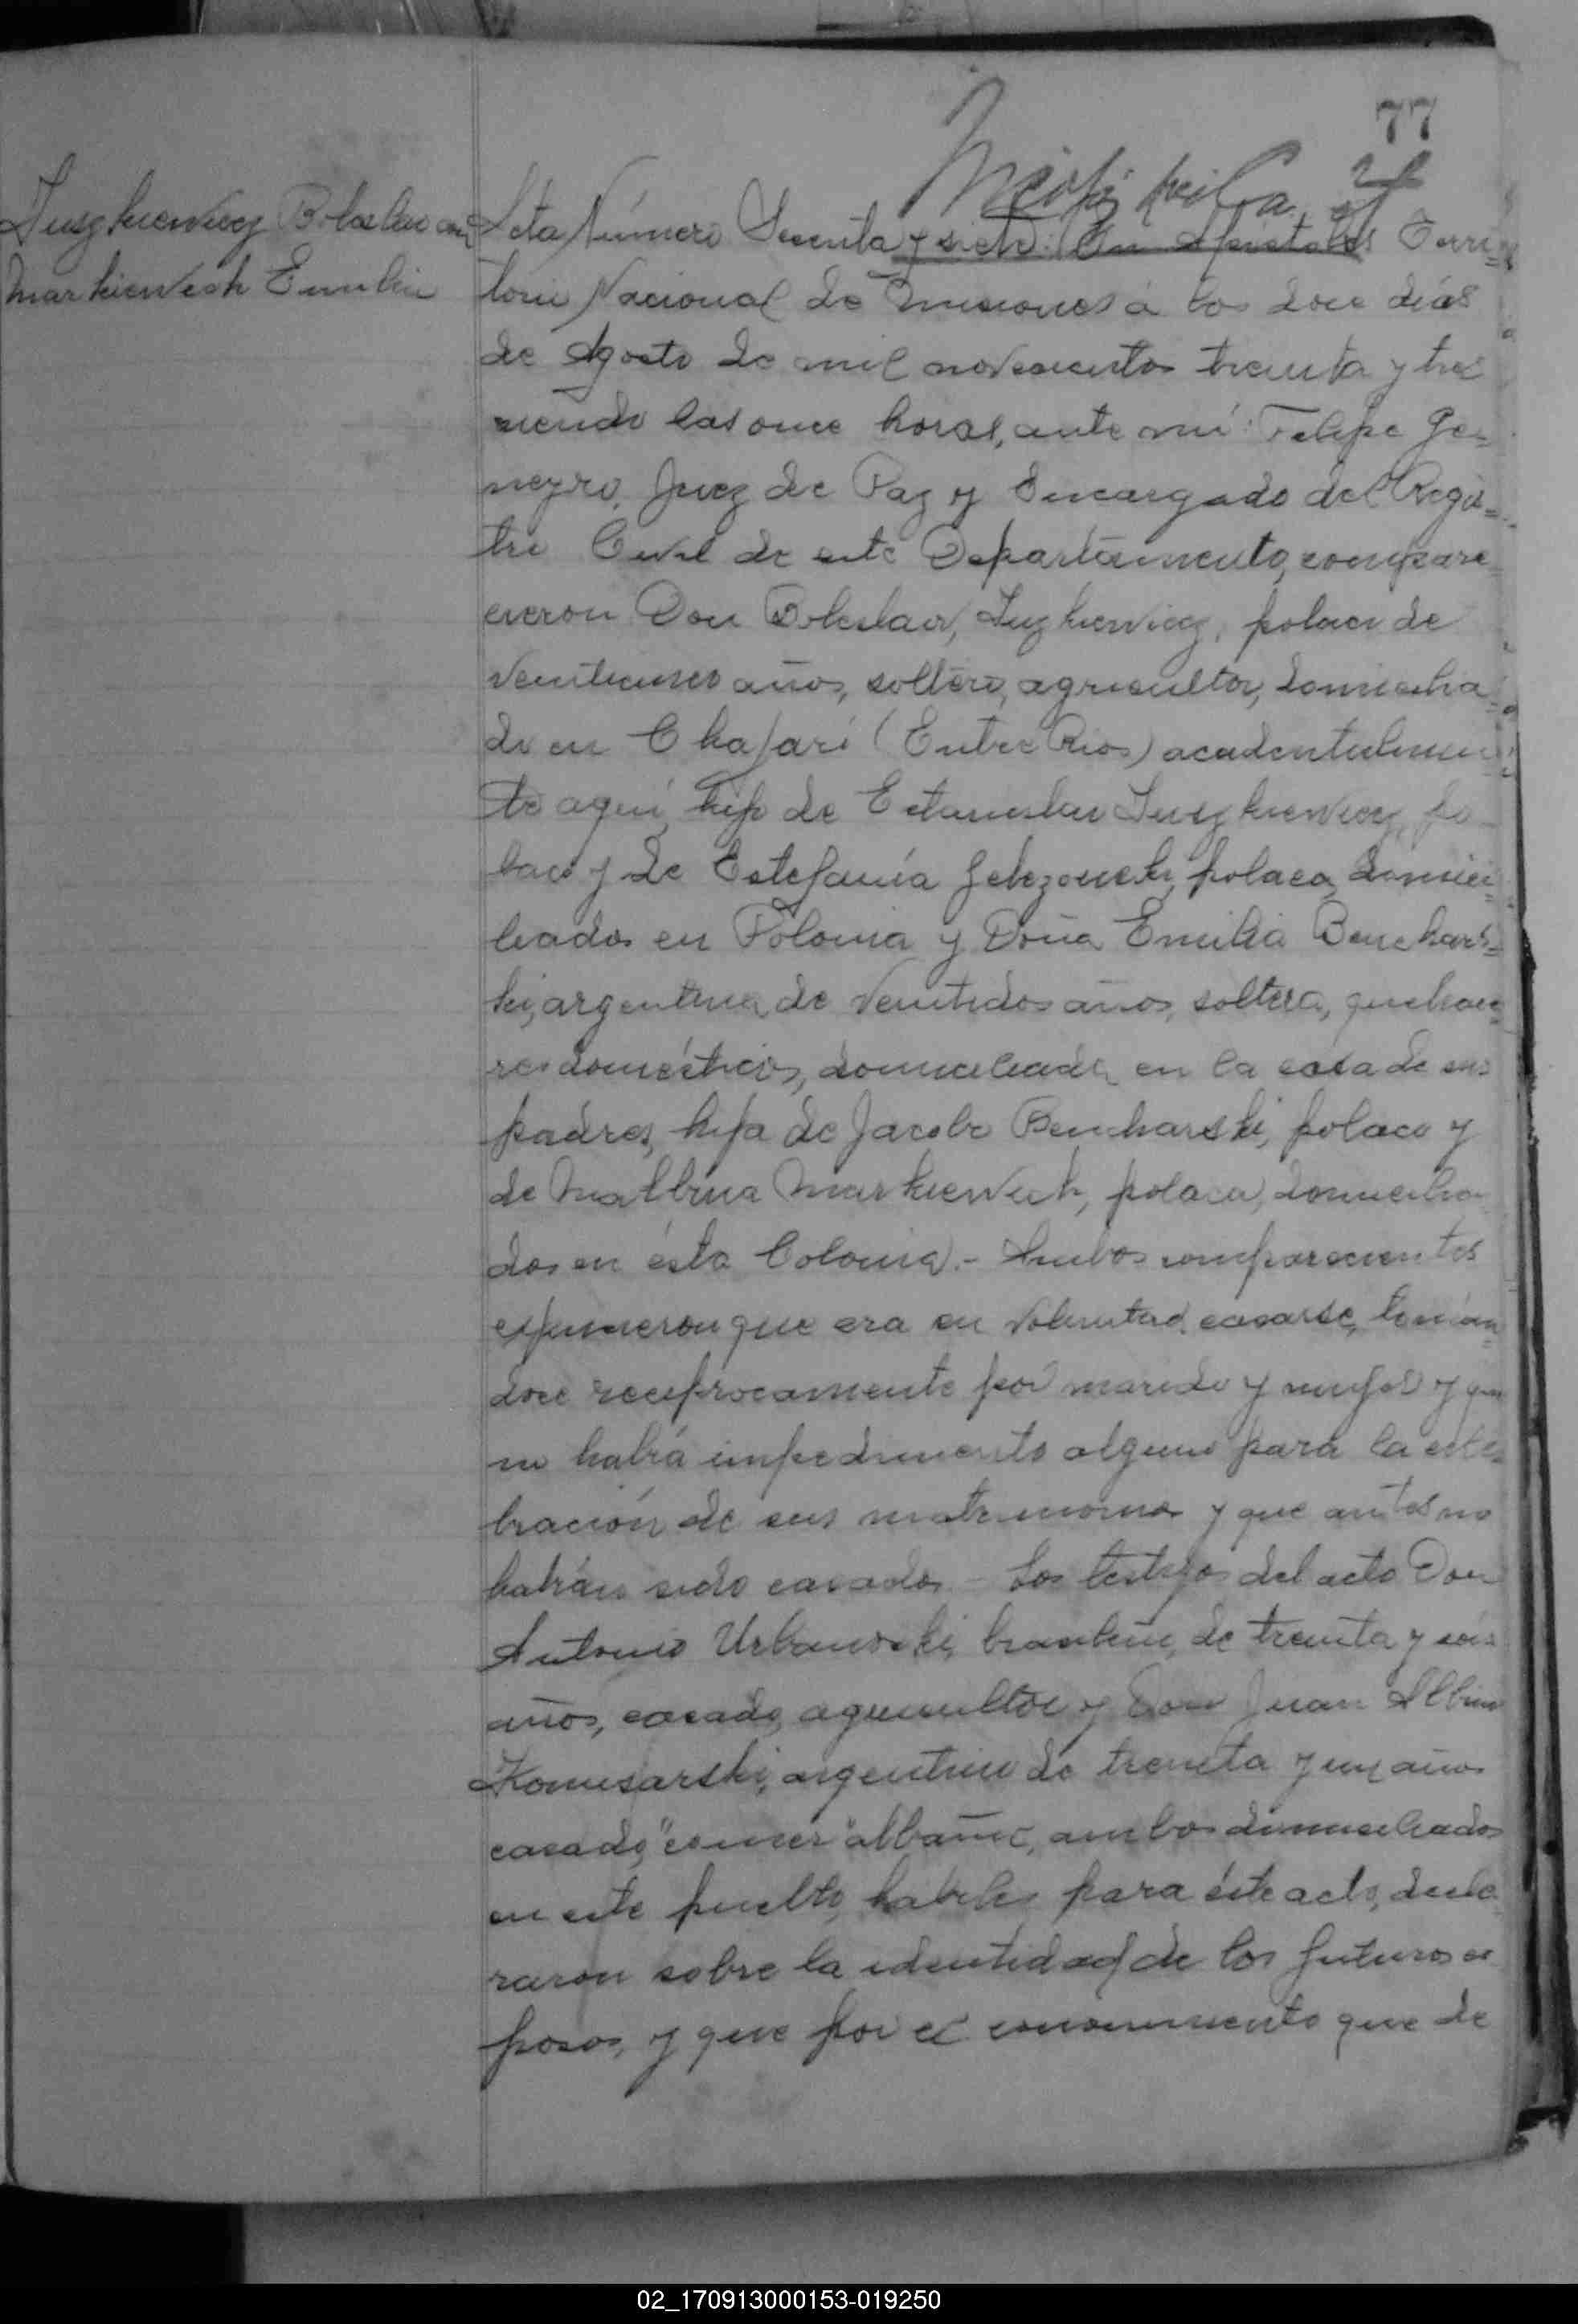 77
Juszkiewicz Boleslao con
Markiewech Emilia
Acta Número Sesenta y siete: En Apóstoles Terri=
torio Nacional de Misiones á los doce dias
de Agosto de mil novecientos treinta y tres
siendo las once horas, ante mi: Felipe Ge=
neyro, Juez de Paz y Encargado del Regis=
tro Civil de este Departamento, compare=
cieron Don Boleslao, Juszkiewicz, polaco de
años, soltero, agricultor, domicilia=
do en Chajari (Entre Rios) accidentalmen
te aquí, hijo de Estanislao Juszkiewicz, po=
laco y de Estefanía polaca, domici=
liados en Polonia y Doña Emilia Benchars=
ki, argentina, de veintidos años, soltera, quehace=
res domésticos, domiciliada en la casa de sus
padres, hija de Jacobo Bencharski, polaco y
de Malbina Markiewech, polaca, domicilia=
dos en ésta Colonia.- Ambos comparecientes
expusieron que era su voluntad casarse, tomán=
dose reciprocamente por marido y mujer y que
no habrá impedimento alguno para la cele=
bración de sus matrimonios y que antes no
habrán sido casados - Los testigos del acto Don
Antonio Urbanoski, brasileño, de treinta y seis
años, casado, agricultor y Don Juan Albino
Komisarski, argentino de treinta y un años
casado, albañil, ambos domiciliados
en este pueblo, habiles para éste acto, decla
raron sobre la identidad de los futuros es
posos, y que por el conocimiento que de
02_170913000153-019250